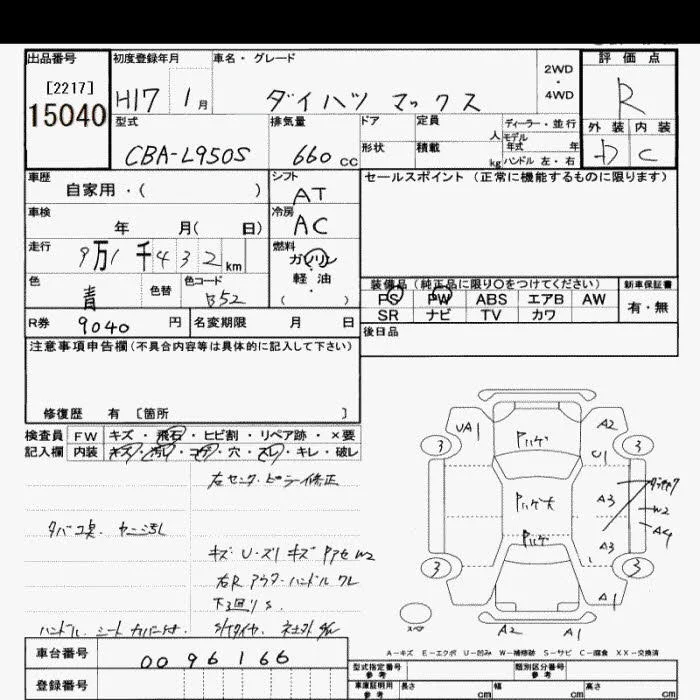 出品番号 初度登録年月 車名・グレード 2WD ・ 4WD 評価点
[2217]
15040 H17 1月 ダイハツ マックス R
型式 排気量 ドア 定員 人 ディーラー・並行 外装 内装
CBA-L950S 660 CC 形状 積載 kg モデル年式 年 ハンドル 左・右 D C
車歴 シフト セールスポイント(正常に機能するものに限ります)
自家用・( ) AT
車検 冷房
年 月( 日) AC
走行 燃料
9万1千432km ガソリン
・
軽油
色 色替 色コード 装備品(純正品に限り○をつけてください) 新車保証書
青 B52 ( ) PS PW ABS エアB AW 有・無
SR ナビ TV カワ
R券 9040 円 名変期限 月 日 後日品
注意事項申告欄(不具合内容等は具体的に記入して下さい)
修復歴 有 [箇所 ]
検査員 FW キズ・飛石・ヒビ割・リペア跡・×要
記入欄 内装 キズ・汚レ・コゲ・穴・スレ・キレ・破レ
右センターピラー修正
タバコ臭 ヤニ汚レ
キズ U・ズリ キズ W2
右R アウターハンドル ワレ
下回り S
ハンドル シートカバー付
UA1 3 ハゲ A2 3
U1
ハゲ大 A3 W2
A4
ハゲ A3
3 3
A1
A2 A1
A-キズ E-エクボ U-凹み W-補修跡 S-サビ C-腐食 XX-交換済
車台番号 0096166
型式指定番号 参考 類別区分番号 参考
登録番号
車庫証明用 参考 長さ cm 幅 cm 高さ cm